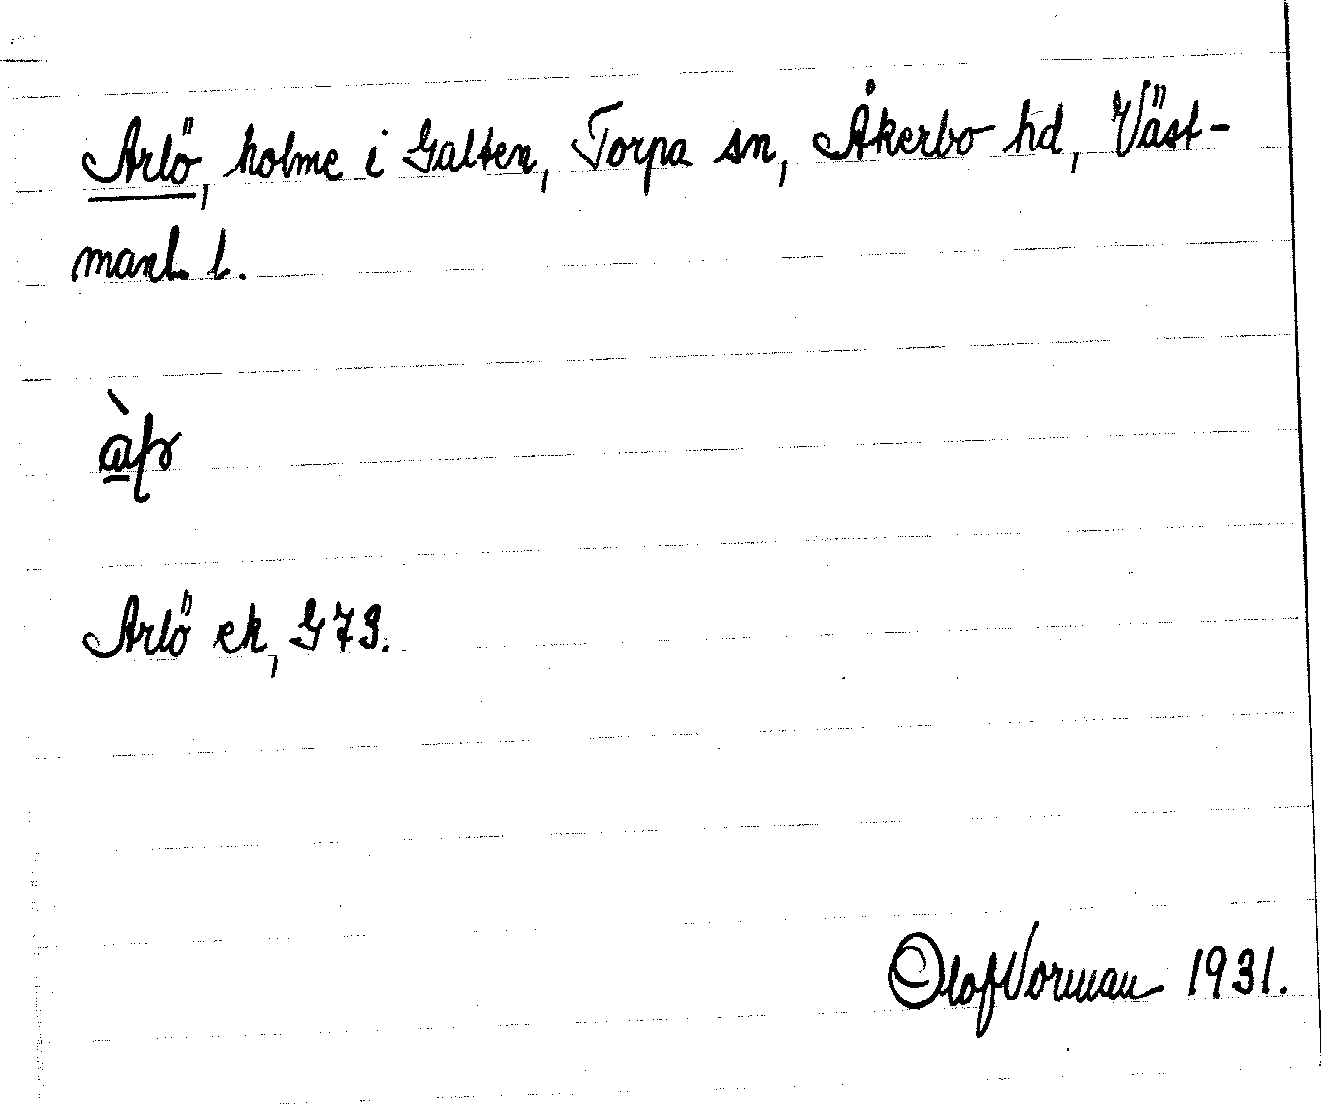 Arlö, holme i Galten, Torpa sn, Åkerbo hd, Väst-
manl. l.
Arlö ek, G 73.
Olof Vorman 1931.